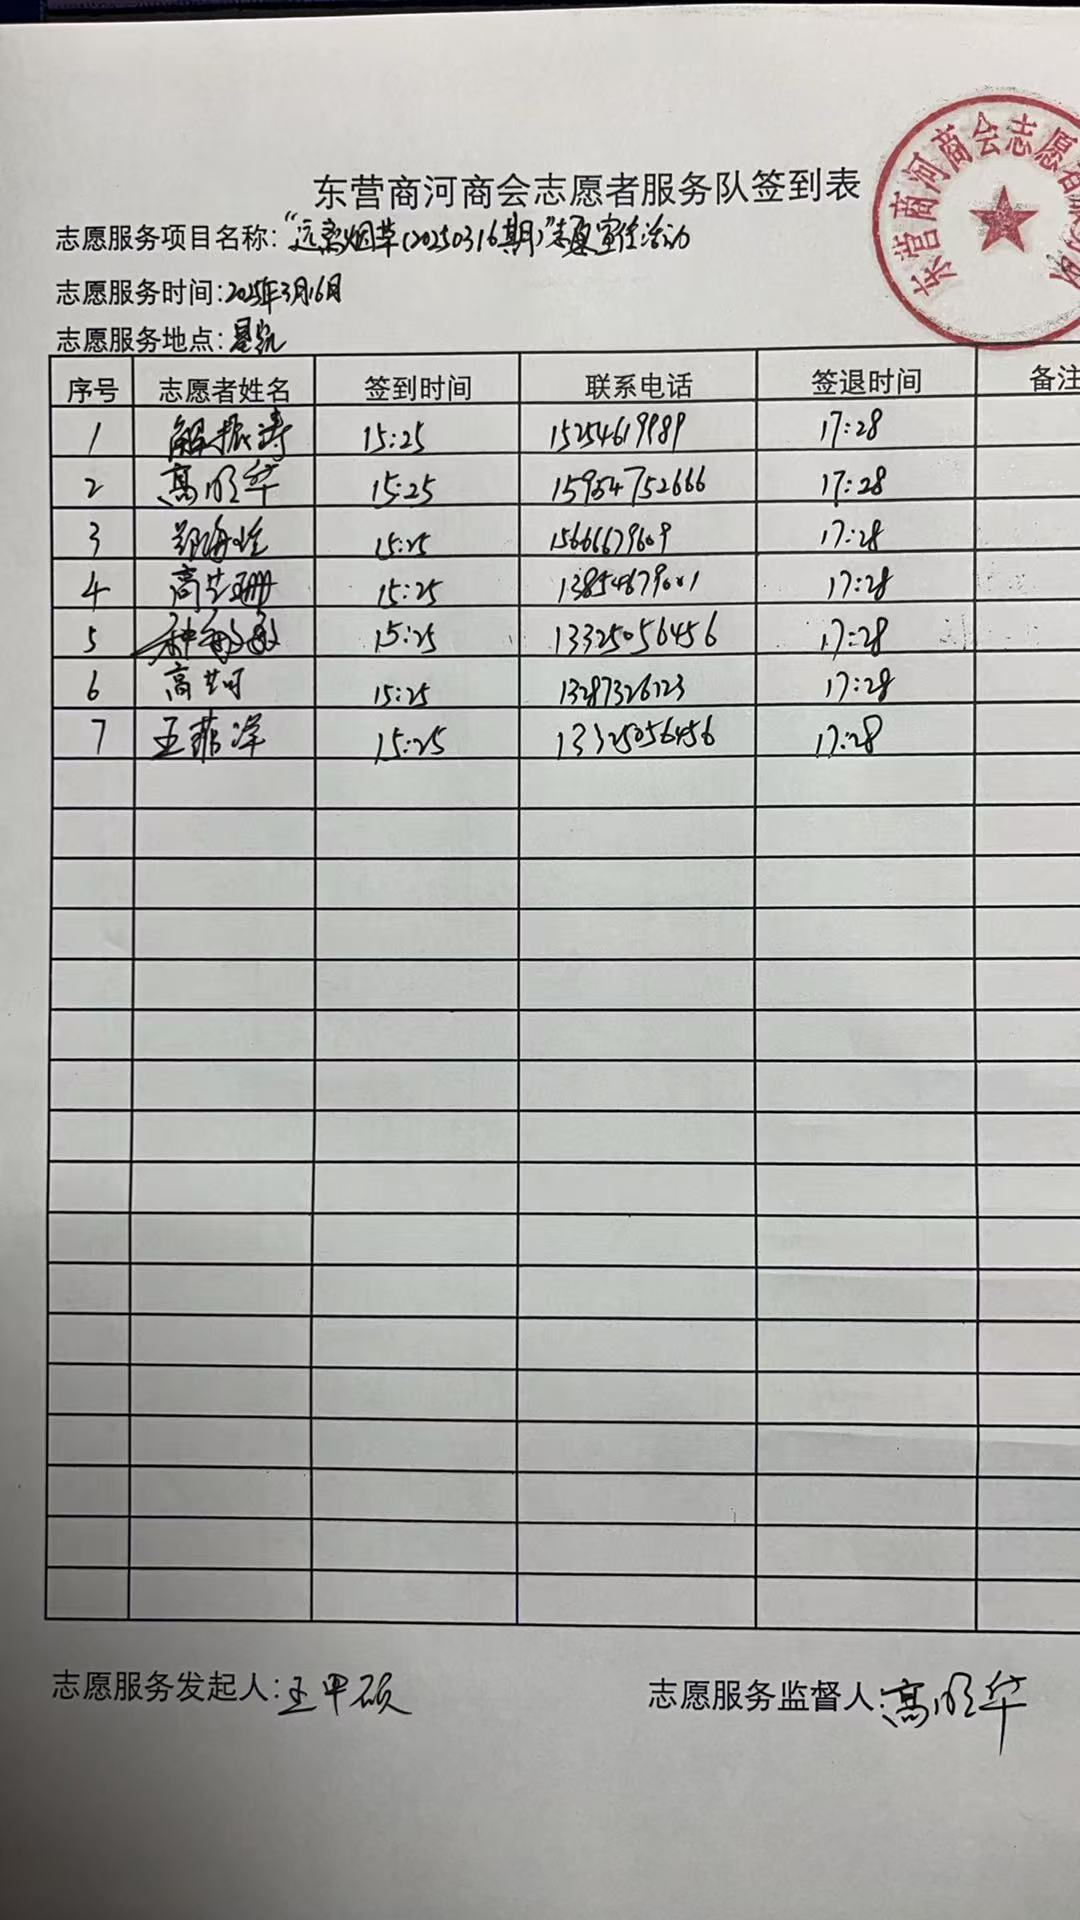 东营商河商会志愿者服务队签到表
志愿服务项目名称:“远离烟草(20250316期)”志愿宣传活动
志愿服务时间:2025年3月16日
志愿服务地点:
序号 志愿者姓名 签到时间 联系电话 签退时间 备注
1 解振涛 15:25 15254619989 17:28
2 高顺华 15:25 15954752666 17:28
3 15:25 15666679609 17:28
4 高艺珊 15:25 13854679001 17:28
5 种敏敏 15:25 13325056456 17:28
6 高艺可 15:25 13287326723 17:28
7 王菲洋 15:25 13325056456 17:28
志愿服务发起人:王甲硕 志愿服务监督人:高顺华
东营商河商会志愿者服务队